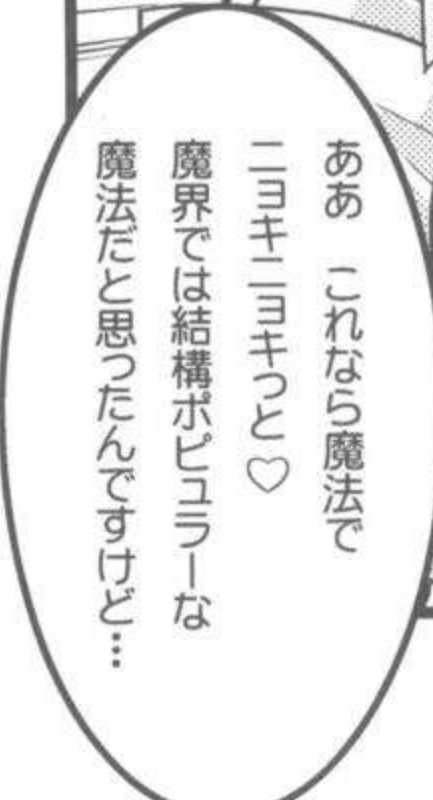 ああ　これなら魔法で
ニョキニョキっと♡
魔界では結構ポピュラーな
魔法だと思ったんですけど…